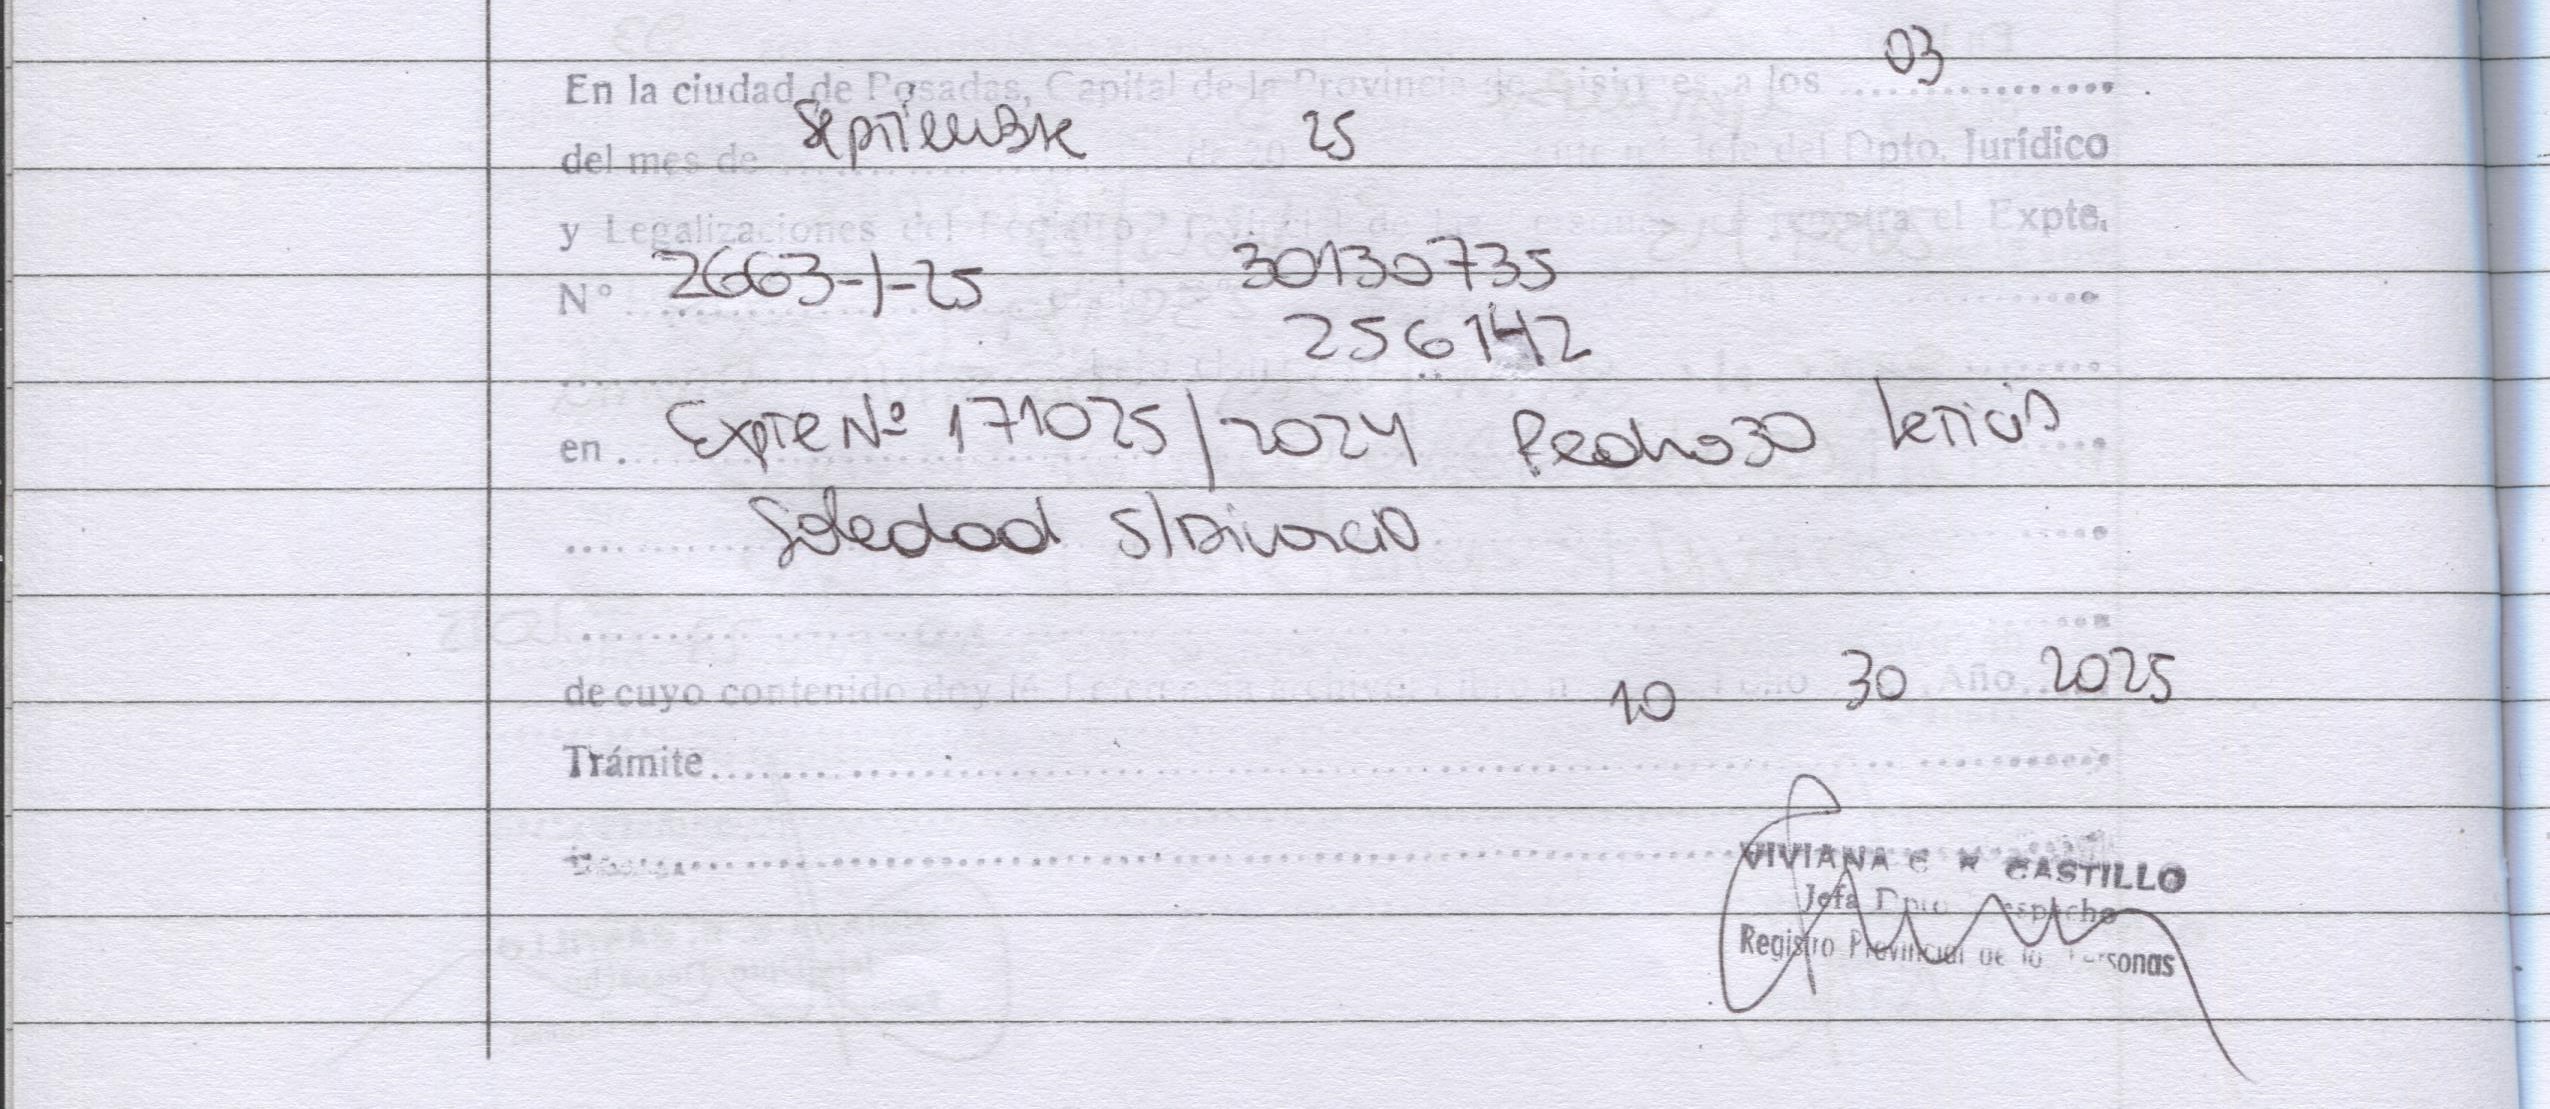 03
En la ciudad de Posadas, Capital de la Provincia de Misiones, a los ....................
Septiembre 25
del mes de .................... de 20 del Dpto. Jurídico
y Legalizaciones del Registro Provincial de las Personas registra el Expte.
N° 2663-1-25 30130735
256142
en . Expte Nº 171025/2024 Pedrozo Leticia
Soledad S/Divorcio
10 30 2025
de cuyo contenido doy fé Folio Año
Trámite ....................
VIVIANA C R CASTILLO
Jefa Dpto Despacho
Registro Provincial de las Personas